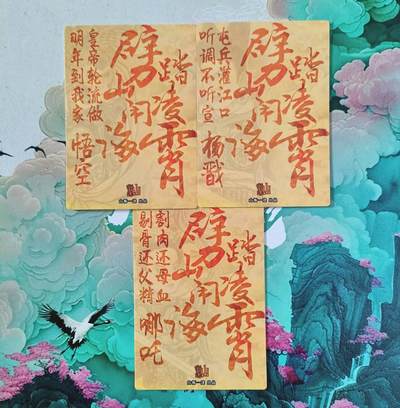 踏凌霄
劈山闹海
皇帝轮流做
明年到我家
悟空
踏凌霄
劈山闹海
屯兵灌江口
听调不听宣
杨戬
踏凌霄
劈山闹海
割肉还母血
剔骨还父精
哪吒